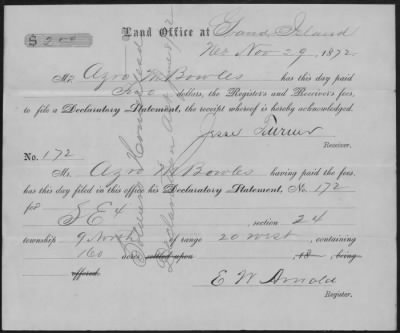 $ 2.00
Land Office at Grand Island
Neb Nov 29, 1872.
Mr. Azro M Bowles has this day paid
Two dollars, the Register's and Receiver's fees,
to file a Declaratory Statement, the receipt whereof is hereby acknowledged.
Jesse Turner
Receiver.
No. 172
Mr. Azro M Bowles having paid the fees,
has this day filed in this office his Declaratory Statement, No. 172
for S E 4 , section 24
township 9 North of range 20 West , containing
160 acres settled upon , 18 , being
offered.
E W Arnold
Register.
Soldiers Homestead
Declaration